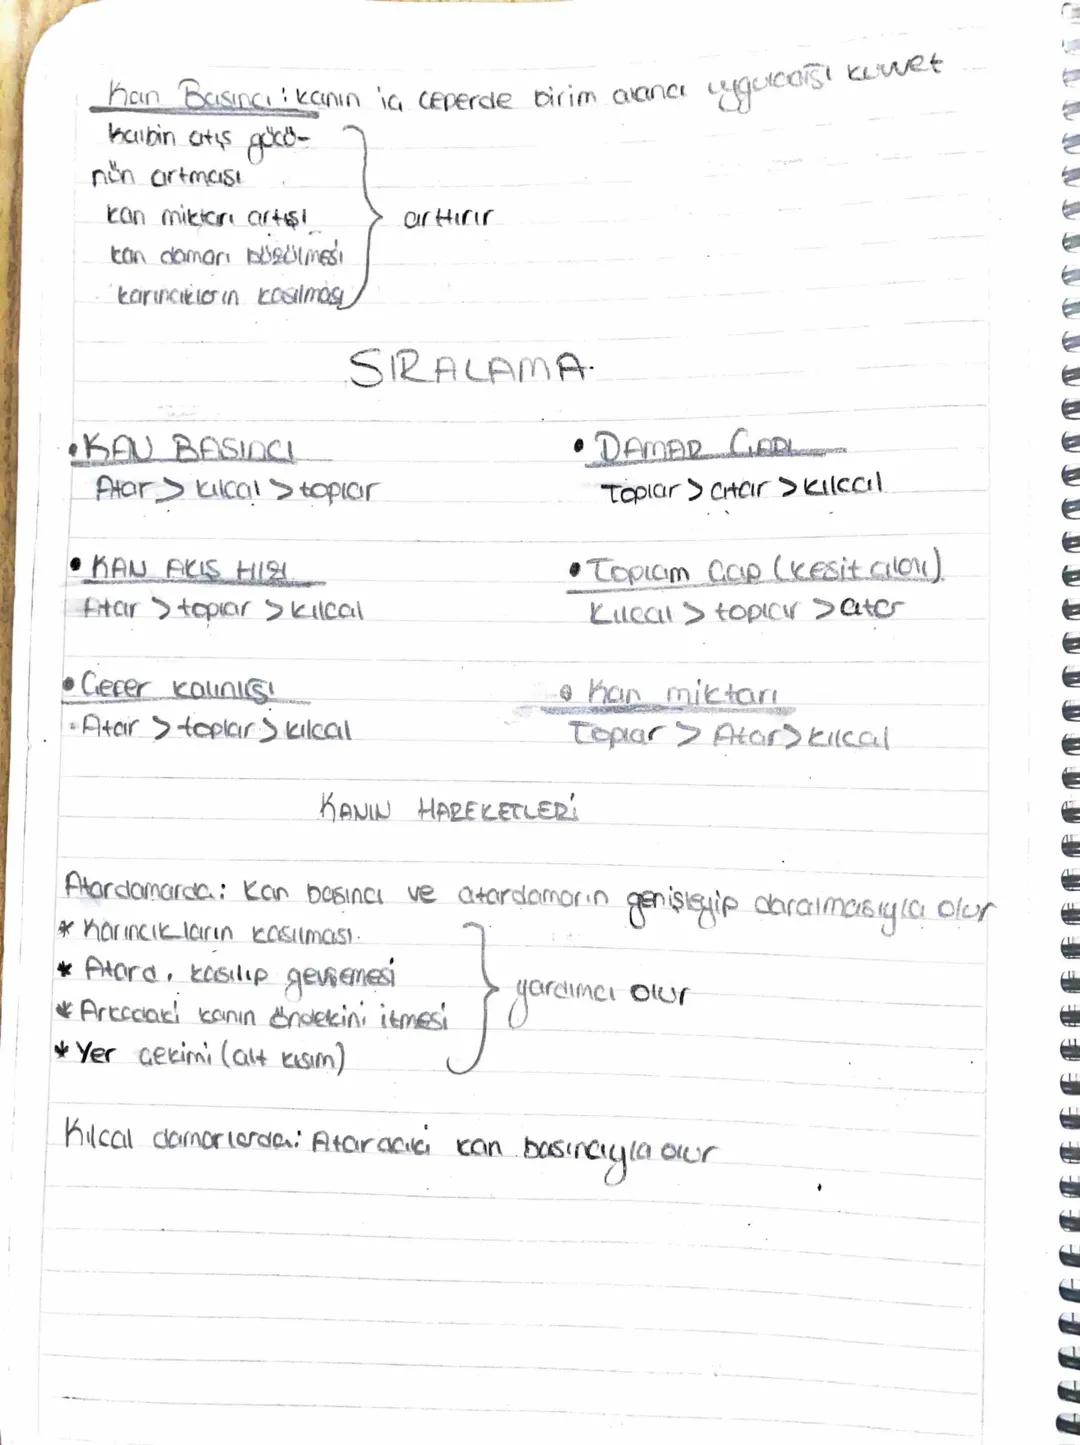 Kan Basıncı: kanın iç çeperde birim alana uyguladığı kuvvet
kalbin atış gücü-
nün artması
kan miktarı artışı
arttırır
kan damarı büzülmesi
karıncıkların kasılması
SIRALAMA
• KAN BASINCI
Atar > kılcal > toplar
• DAMAR ÇAPI
Toplar > atar > kılcal
• KAN AKIŞ HIZI
Atar > toplar > kılcal
• Toplam Çap (kesit alanı)
Kılcal > toplar > atar
• Çeper kalınlığı
- Atar > toplar > kılcal
• Kan miktarı
Toplar > Atar > kılcal
KANIN HAREKETLERİ
Atardamarda: Kan basıncı ve atardamarın genişleyip daralmasıyla olur
* Karıncıkların kasılması.
* Atard. kasılıp gevşemesi
yardımcı olur
* Arkadaki kanın öndekini itmesi
* Yer çekimi (alt kısım)
Kılcal damarlarda: Atardaki kan basıncıyla olur